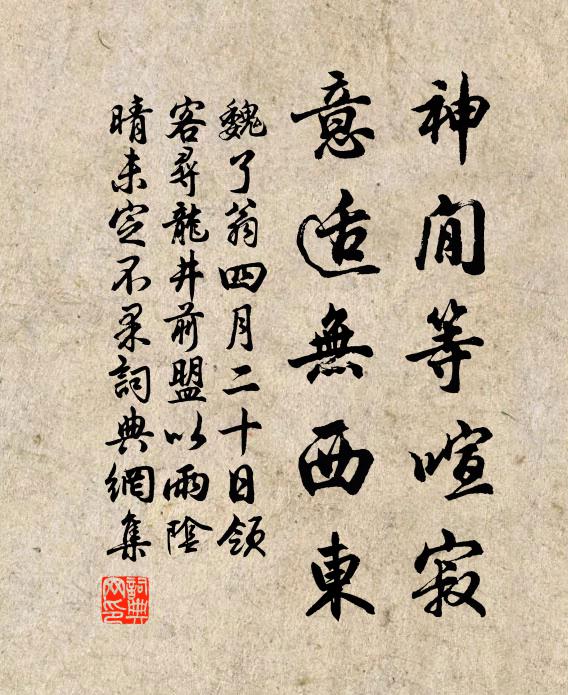 神閒等喧寂
意适無西東
魏了翁四月二十日領
客尋龍井前盟以雨陰
晴未定不果詞典網集
詞典網印